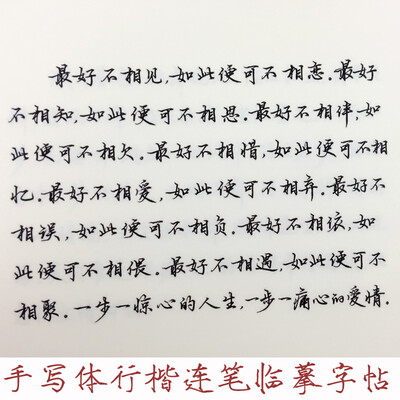 最好不相见,如此便可不相恋.最好
不相知,如此便可不相思.最好不相伴,如
此便可不相欠.最好不相惜,如此便可不相
忆.最好不相爱,如此便可不相弃.最好不
相误,如此便可不相负.最好不相依,如
此便可不相偎.最好不相遇,如此便可不
相聚.一步一惊心的人生,一步一痛心的爱情.
手写体行楷连笔临摹字帖